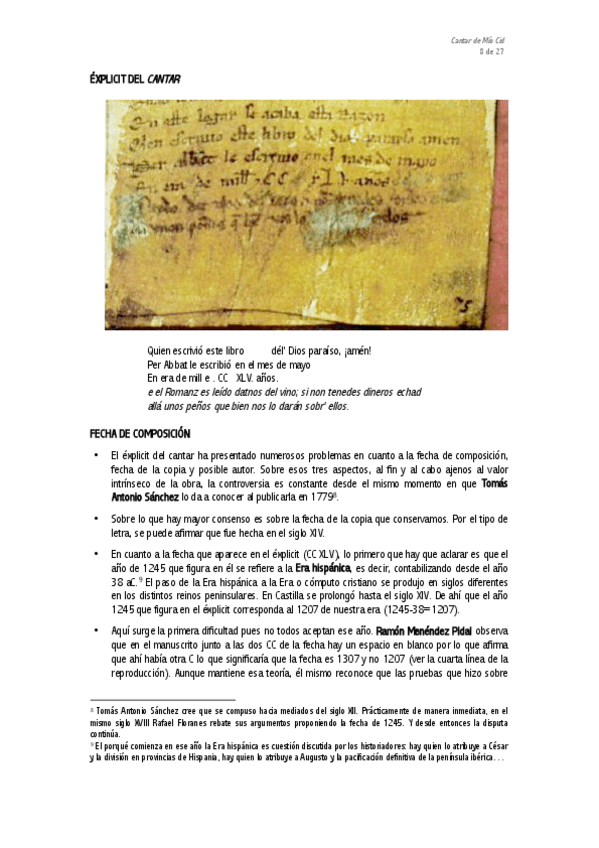 Cantar de Mío Cid
8 de 27
ÉXPLICIT DEL CANTAR
En este logar se acaba esta razon
Quien escrivio este libro del dios paraiso amen
Per abbat le escrivio enel mes de mayo
En era de mill . CC XL V. años
Quien escrivió este libro dél' Dios paraíso, ¡amén!
Per Abbat le escribió en el mes de mayo
En era de mill e . CC XLV. años.
e el Romanz es leído datnos del vino; si non tenedes dineros echad
allá unos peños que bien nos lo darán sobr' ellos.
FECHA DE COMPOSICIÓN
• El éxplicit del cantar ha presentado numerosos problemas en cuanto a la fecha de composición,
fecha de la copia y posible autor. Sobre esos tres aspectos, al fin y al cabo ajenos al valor
intrínseco de la obra, la controversia es constante desde el mismo momento en que Tomás
Antonio Sánchez lo da a conocer al publicarla en 1779⁸.
• Sobre lo que hay mayor consenso es sobre la fecha de la copia que conservamos. Por el tipo de
letra, se puede afirmar que fue hecha en el siglo XIV.
• En cuanto a la fecha que aparece en el éxplicit (CC XLV), lo primero que hay que aclarar es que el
año de 1245 que figura en él se refiere a la Era hispánica, es decir, contabilizando desde el año
38 aC.⁹ El paso de la Era hispánica a la Era o cómputo cristiano se produjo en siglos diferentes
en los distintos reinos peninsulares. En Castilla se prolongó hasta el siglo XIV. De ahí que el año
1245 que figura en el éxplicit corresponda al 1207 de nuestra era (1245-38=1207).
• Aquí surge la primera dificultad pues no todos aceptan ese año. Ramón Menéndez Pidal observa
que en el manuscrito junto a las dos CC de la fecha hay un espacio en blanco por lo que afirma
que ahí había otra C lo que significaría que la fecha es 1307 y no 1207 (ver la cuarta línea de la
reproducción). Aunque mantiene esa teoría, él mismo reconoce que las pruebas que hizo sobre
⁸ Tomás Antonio Sánchez cree que se compuso hacia mediados del siglo XII. Prácticamente de manera inmediata, en el
mismo siglo XVIII Rafael Floranes rebate sus argumentos proponiendo la fecha de 1245. Y desde entonces la disputa
continúa.
⁹ El porqué comienza en ese año la Era hispánica es cuestión discutida por los historiadores: hay quien lo atribuye a César
y la división en provincias de Hispania, hay quien lo atribuye a Augusto y la pacificación definitiva de la península ibérica...